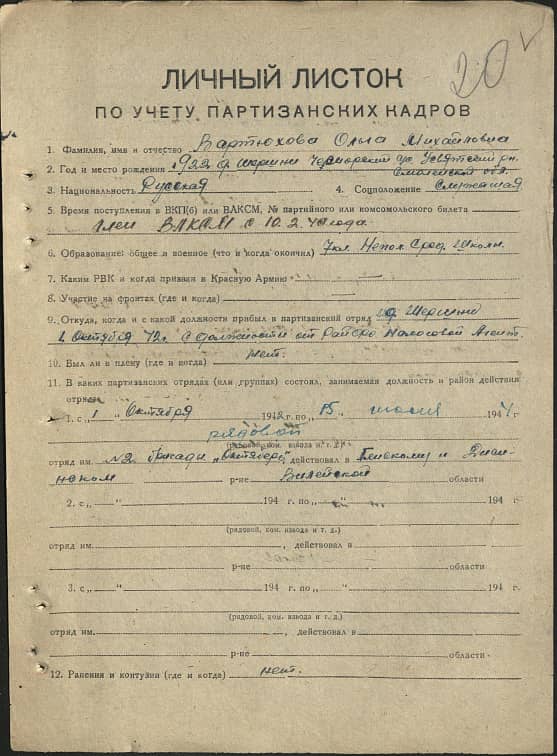 20
ЛИЧНЫЙ ЛИСТОК
ПО УЧЕТУ ПАРТИЗАНСКИХ КАДРОВ
1. Фамилия, имя и отчество Вартюхова Ольга Михайловна
2. Год и место рождения 1922 р.
Смоленской обл.
3. Национальность Русская 4. Соцположение Служащая
5. Время поступления в ВКП(б) или ВЛКСМ, № партийного или комсомольского билета
Член ВЛКСМ с 10.2.40 года.
6. Образование: общее и военное (что и когда окончил) 7 кл. Непол. Сред. Школы.
7. Каким РВК и когда призван в Красную Армию
8. Участие на фронтах (где и когда)
9. Откуда, когда и с какой должности прибыл в партизанский отряд
1 Октября 42 г. с должности Налоговой Агент.
10. Был ли в плену (где и когда) нет.
11. В каких партизанских отрядах (или группах) состоял, занимаемая должность и район действия
отряда
1. с „ 1 “ Октября 1942 г. по „ 15 “ июля 1944 г.
рядовой
(рядовой, ком. взвода и т. д.)
отряд им. №2 бригады „Октябрь“, действовал в
р-не Вилейской области
2. с „ “ 194 г. по „ “ 194 г.
(рядовой, ком. взвода и т. д.)
отряд им. , действовал в
р-не области
3. с „ “ 194 г. по „ “ 194 г.
(рядовой, ком. взвода и т. д.)
отряд им. , действовал в
р-не области
12. Ранения и контузии (где и когда) нет.